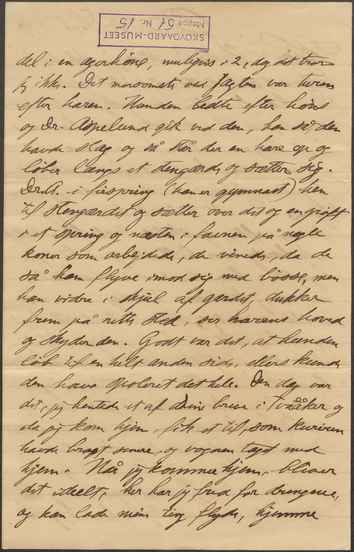 SKOVGAARD-MUSEET
Mappe 51 Nr. 15
del i en agerhöne, muligvis i 2, dog det tror
jeg ikke. Det morsomste ved Jagten var turen
efter haren. Hunden ledte efter höns
og Dr. Aspelund gik ved den, han så den
havde stag og så står der en hare op og
löber langs et stengærde og sætter sig.
Drt. i firspring (han er gymnast) hen
til stengærdet og sætter over det og en gröft
i et spring og næsten i favnen på nogle
koner som arbejdede, de vinede, da de
så ham flyve imod sig med bösse, men
han videre i skjul af gærdet, dukker
frem på rette sted, ser harens hoved
og skyder den. Godt var det, at hunden
löb til en helt anden side, ellers kunde
den have spoleret det hele. Den dag var
det, jeg hentede et af dine breve i Tvååker og
da jeg kom hjem, fik et til, som kurven
havde bragt senere, og vognen taget med
hjem. Når jeg kommer hjem, bliver
det ideelt, her har jeg fred for drengene,
og kan lade min Vrøvl flyde, hjemme